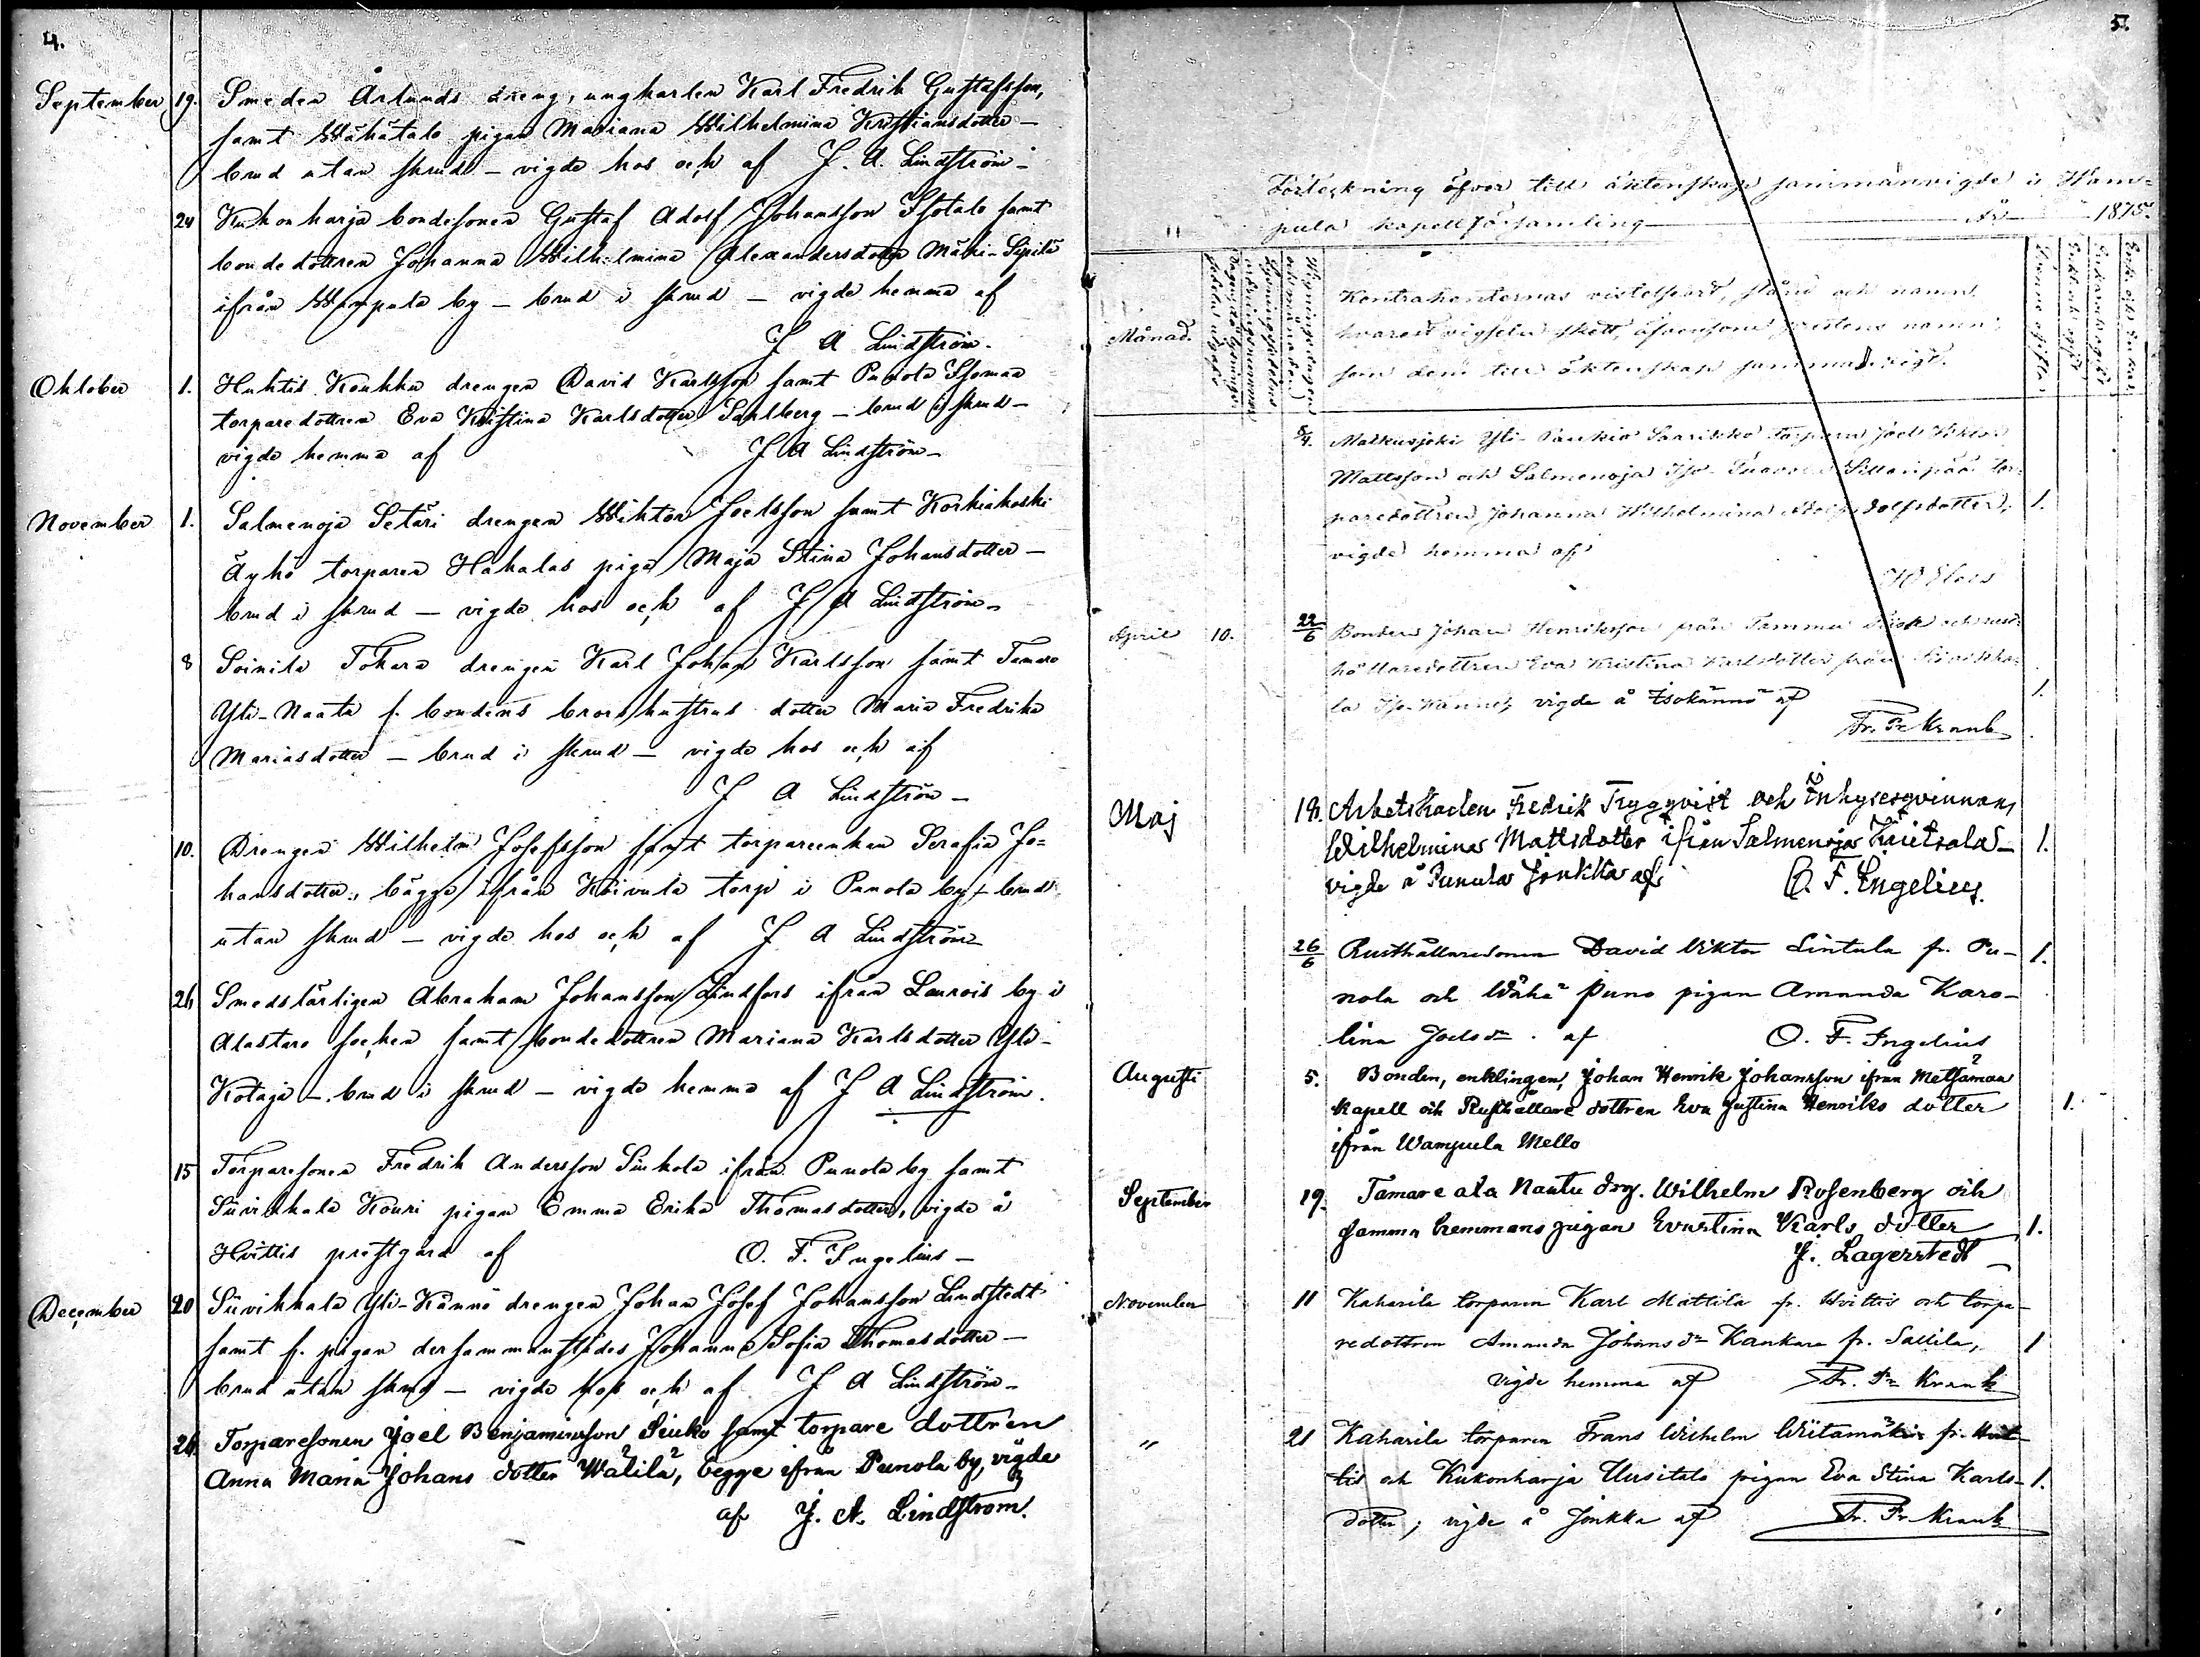 4.
September 19. Smeden Årlunds dreng, ungkarlen Karl Fredrik Gustafsson,
samt Wähätalo pigan Mariana Wilhelmina Kristiansdotter —
brud utan skrud — vigde hos och af J. A. Lindström —
24 Kukonharja bondesonen Gustaf Adolf Johansson Isotalo samt
bondedottren Johanna Wilhelmina Alexandersdotter Mäki-Sipilä
ifrån Wampula by — brud i skrud — vigde hemma af
J A Lindström.
Oktober 1. Huhtis Koukku drengen David Karlsson samt Punola Isomaa
torparedottren Eva Kristina Karlsdotter Sahlberg — brud i skrud —
vigde hemma af J A Lindström —
November 1. Salmenoja Setäri drengen Wiktor Joelsson samt Korkiakoski
Äyhö torparen Hakalas piga Maja Stina Johansdotter —
brud i skrud — vigde hos och af J A Lindström —
8 Soinila Tokara drengen Karl Johan Karlsson samt Tamare
Yli-Naatu f. bondens brorshustrus dotter Maria Fredrika
Mariasdotter — brud i skrud — vigde hos och af
J A Lindström —
10. Drengen Wilhelm Josefsson samt torpareenkan Serafia Jo=
hansdotter, bägge ifrån Koivula torp i Punola by — brud
utan skrud — vigde hos och af J A Lindström
26 Smedslärligen Abraham Johansson Lindfors ifrån Laurois by i
Alastaro socken samt bondedottren Mariana Karlsdotter Yli-
Kotaja — brud i skrud — vigde hemma af J A Lindström.
15 Torparesonen Fredrik Andersson Sinkola ifrån Punola by samt
Siivikkala Kouri pigan Emma Erika Thomasdotter, vigde å
Hvittis prestgård af O. F. Ingelius —
December 20 Siivikkala Yli-Kännö drengen Johan Josef Johansson Lindstedt
samt f. pigan dersammanstädes Johanna Sofia Thomasdotter —
brud utan skrud — vigde hos och af J A Lindström —
26 Torparesonen Joel Benjaminsson Seiko samt torpare dottren
Anna Maria Johans dotter Wälilä, begge ifrån Punola by, vigde
af J. A. Lindström.
5.
Förteckning öfver till äktenskap sammanvigde i Wam=
pula kapellförsamling År 1875.
Månad.
Kontrahenternas vistelseort, stånd och namn,
hvarest vigseln skett, äfvensom prestens namn,
som dem till äktenskap sammanvigt.
5/4. Matkusjoki Yli-Paukio Saarikko torparen Joel Viktor
Mattsson och Salmenoja Iso- Sillanpää tor-
paredottren Johanna Wilhelmina Adolfsdotter, 1.
vigde hemma af
April 10. 22/6 Bonden Johan Henriksson från Tammia och rust-
hållaredottren Eva Kristina Karlsdotter från Siivikka-
la Iso-Kännö, vigde å Isokännö af 1.
Fr. Fr. Krank
Maj 18. Arbetskarlen Fredrik Tryggvist och Inhysesqvinnan,
Wilhelmina Mattsdotter ifrån Salmenoja Kautsala — 1.
vigde å Punola Jonkka af O. F. Ingelius.
26/6 Rusthållaresonen David Viktor Lintula fr. Pu- 1.
nola och Wähä Puno pigan Amanda Karo-
lina Joelsdr. af O. F. Ingelius
Augusti 5. Bonden, enklingen, Johan Henrik Johansson ifrån Metsämaa
Kapell och Rusthållare dottren Eva Justina Henriks dotter 1.
ifrån Wampula Mello
September 19. Tamare ala Nautu drg. Wilhelm Rosenberg och
samma hemmans pigan Evastina Karls dotter 1.
J. Lagerstedt
November 11 Kaharila torparen Karl Mattila fr. Hvittis och torpa-
redottren Amanda Johans dr Kankare fr. Sallila, 1
vigde hemma af Fr. Fr. Krank
" 21 Kaharila torparen Frans Wilhelm Wiitamäki fr. Hvit-
tis och Kukonharja Uusitalo pigan Eva Stina Karls- 1.
dotter; vigde å Jonkka af Fr. Fr. Krank